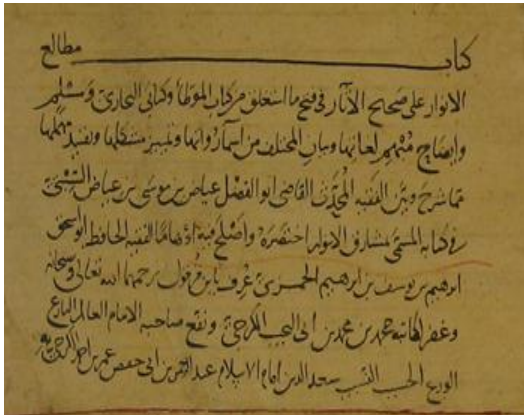 كتاب مطالع
الانوار على صحيح الآثار في فتح ما استغلق من كتاب الموطأ وكتابي البخاري ومسلم
وايضاح مبهم لغاتها وبيان المختلف من اسماء رواتها وتمييز مشكلها وتقييد مهملها
مما شرح وبين الفقيه المحدث القاضي ابو الفضل عياض بن موسى بن عياض السبتي
في كتابه المسمى بمشارق الانوار اختصره واصلح فيه الفقيه الحافظ ابو اسحق
ابرهيم بن يوسف بن ابرهيم الحمزي عرف بابن قرقول رحمهما الله تعالى
وغفر لكاتبه محمد بن محمد بن ابي الكرجي ونفع صاحبه الامام العالم البارع
الورع الحسيب النسيب سعد الدين امام الاسلام عبد الرحمن بن ابي حفص عمر بن